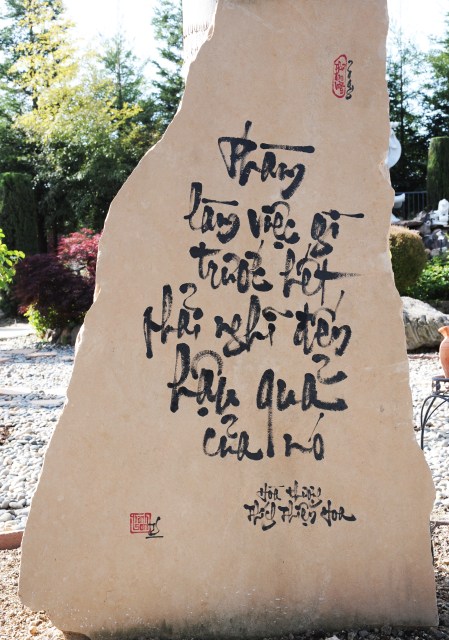 Phàm
làm việc gì
trước hết
phải nghĩ đến
hậu quả
của nó
Hòa Thượng
Thích Thiện Hoa